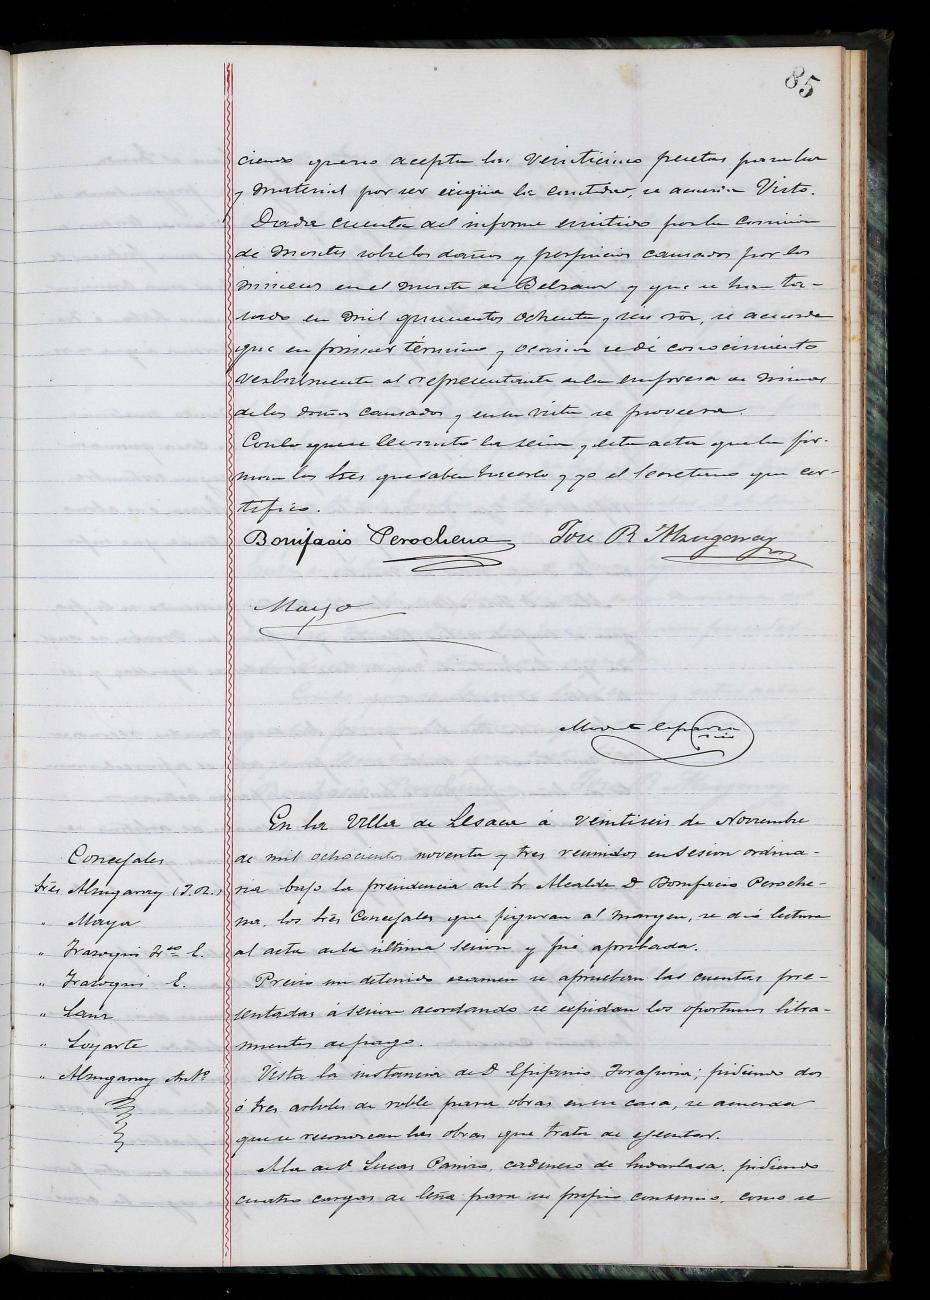 85
ciendo que no acepta las veinticinco pesetas para luz
y material por ser exigua la cantidad, se acuerda Visto.
Dada cuenta del informe emitido por la comision
de Montes sobre los daños y perjuicios causados por los
mineros en el monte de y que se han ta-
sado en mil quinientos ochenta y seis rs, se acuerda
que en primer término y ocasion se dé conocimiento
verbalmente al representante de la empresa de minas
de los daños causados y en su vista se proveera.
Con lo que se levantó la sesion y esta acta que la fir-
man los Sres que saben hacerlo y yo el Secretario que cer-
tifico.
Bonifacio Perochena Jose R. Almugarray
Maya
En la Villa de Lesaca á veintiseis de Noviembre
de mil ochocientos noventa y tres reunidos en sesion ordina-
ria bajo la presidencia del Sr Alcalde D Bonifacio Peroche-
na, los Sres Concejales que figuran al margen, se dió lectura
al acta de la última sesion y fué aprobada.
Concejales
Sres Almugarray (J.R.)
" Maya
" Irazoqui Fco E.
" Irazoqui E.
" Sanz
" Loyarte
" Almugarray Anto
Previo un detenido examen se aprueban las cuentas pre-
sentadas á sesion acordando se expidan los oportunos libra-
mientos de pago.
Vista la instancia de D Epifanio pidiendo dos
ó tres arboles de roble para obras en su casa, se acuerda
que se reconozcan las obras que trata de ejecutar.
A la de D Lucas Ramiro, cadenero de pidiendo
cuatro cargas de leña para su propio consumo, como se